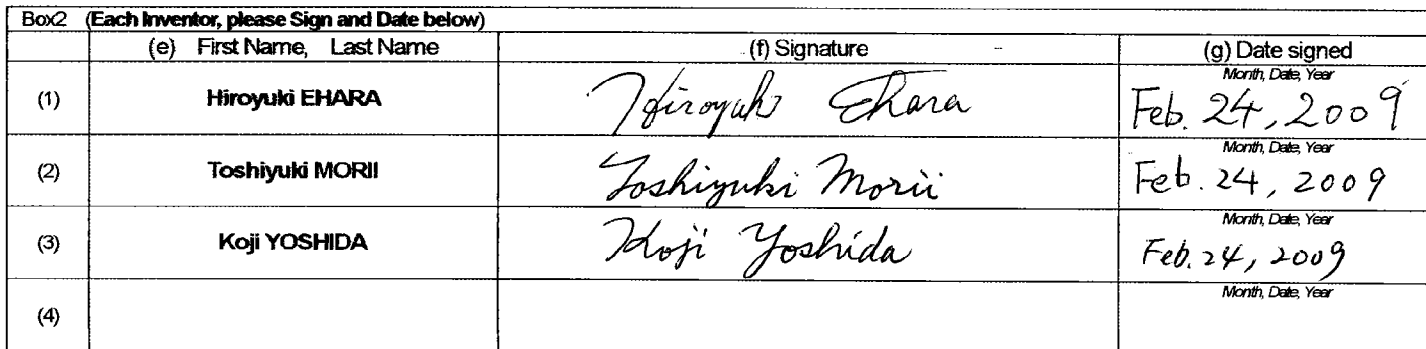 Box2 (Each Inventor, please Sign and Date below)
(e) First Name, Last Name (f) Signature (g) Date signed
(1) Hiroyuki EHARA Hiroyuki Ehara Month, Date, Year Feb. 24, 2009
(2) Toshiyuki MORII Toshiyuki Morii Month, Date, Year Feb. 24, 2009
(3) Koji YOSHIDA Koji Yoshida Month, Date, Year Feb. 24, 2009
(4) Month, Date, Year